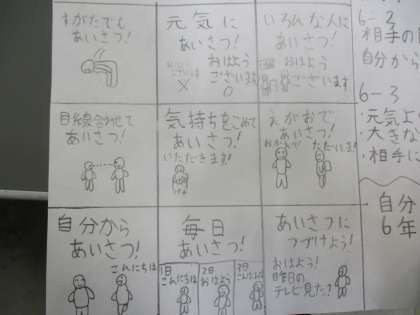 すがたでも
あいさつ!
元気に
あいさつ!
おはよう
ございます
×
○
いろんな人に
あいさつ!
おはよう
ございます
目線合わせて
あいさつ!
気持ちをこめて
あいさつ!
いただきます!
えがおで
あいさつ!
ただいま!
自分から
あいさつ!
こんにちは
毎日
あいさつ!
1日
こんにちは
2日
おはよう
3日
こんにちは
あいさつに
つづけよう!
おはよう!
昨日の
テレビ見た?
6-3
相手の
自分から
6-3
・元気よ
・大きな
・相手に
自分
6年